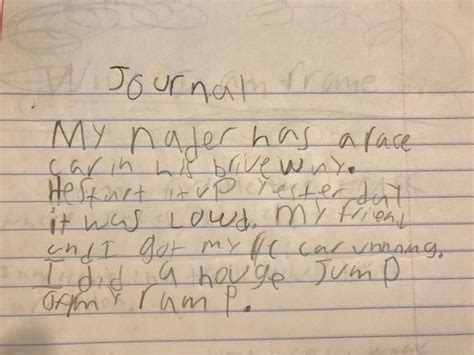 Journal
My nader has a race
car in his brivewny.
He start it up yesterday
it was Lowd. my friend
and I got my RC car unning.
I did a houge Jump
of my ramp.